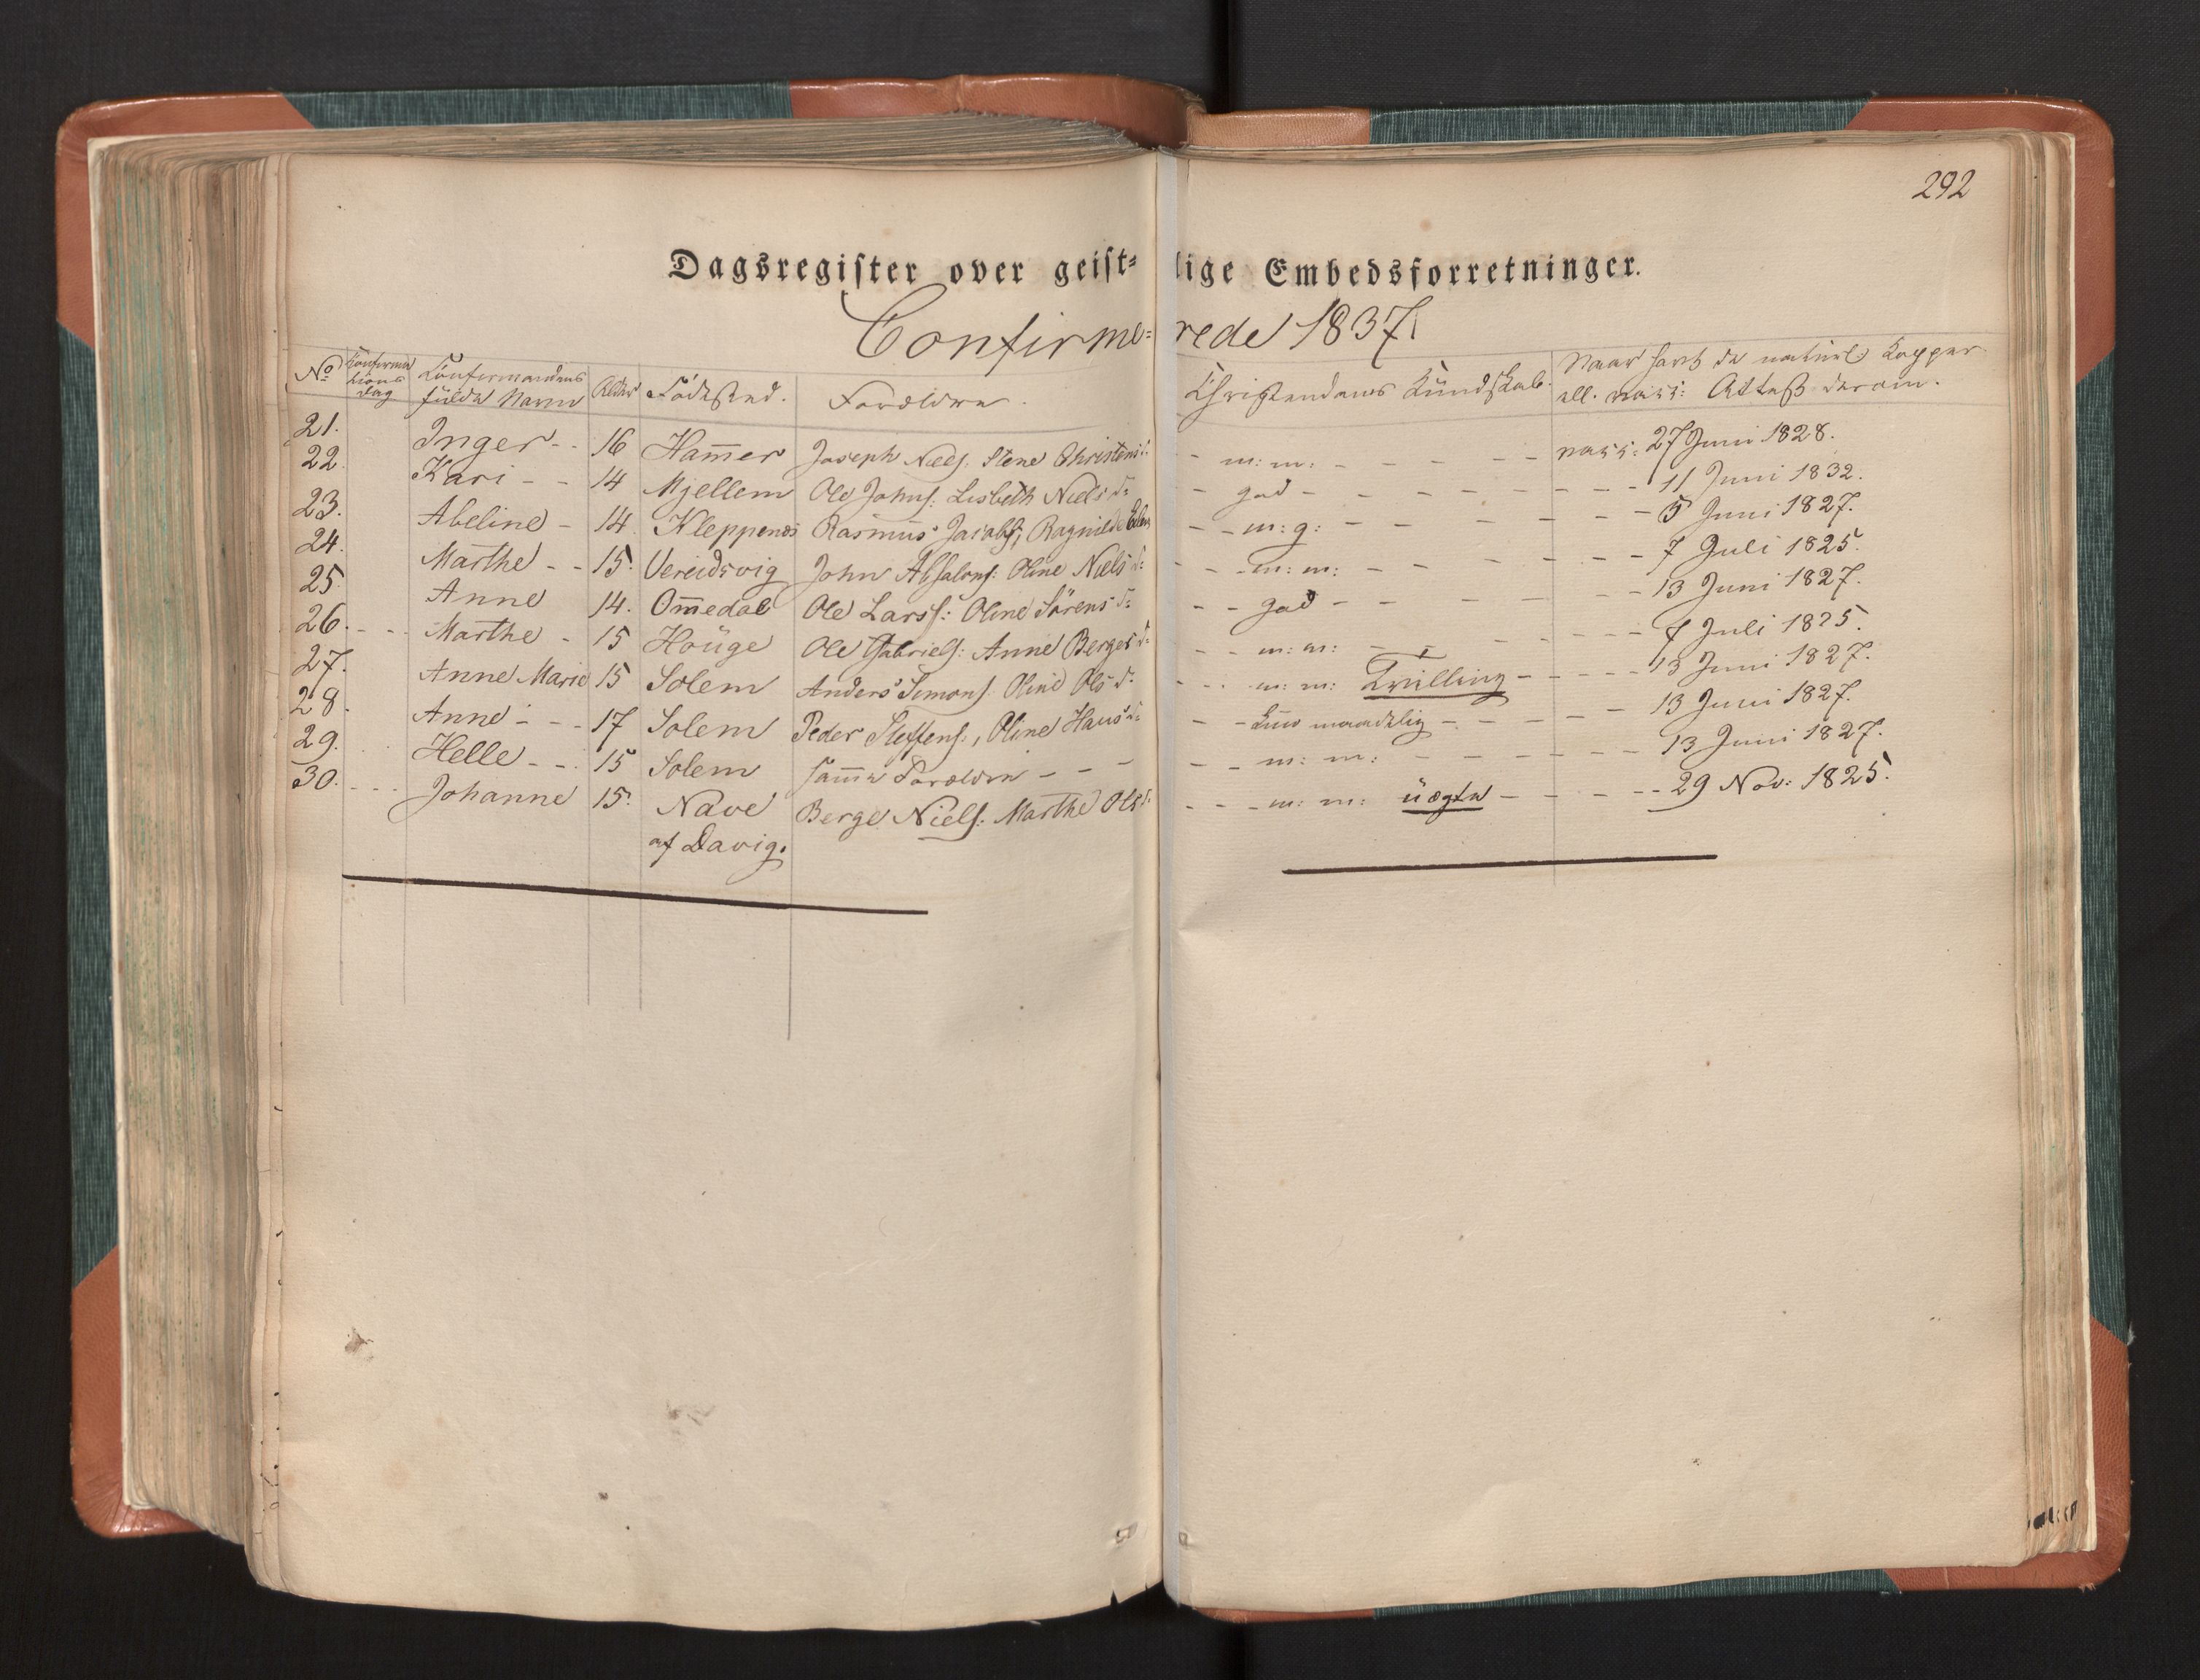 292
Dagsregister over geist= lige Embedsforretninger.
Confirme= rede 1837.
No Konfirma tions dag Konfirmandens fulde Navn Alder Fødested. Forældre. Christendoms Kundskab. Naar havt de naturl. Kopper ell. vacc: Attest derom.
21. Inger - - 16 Ham̅er Joseph Niels. Stene Christens d: - m: m: - - - - - vacc: 27 Juni 1828.
22. Kari - - 14 Mjellem Ole Johns: Lisbeth Niels d: - god - - - - - - - - 11 Juni 1832.
23. Abeline - 14 Kleppenæs Rasmus Jacobs; Ragnilde - - m: g: - - - - - - - 5 Juni 1827.
24. Marthe - - 15. Vereidsvig John Absalons: Oline Niels d: - - m: m: - - - - - - - 7 Juli 1825.
25. Anne 14. Om̅edal Ole Larss: Oline Sørens d: - - god - - - - - - - 13 Juni 1827.
26. - - - Marthe - 15 Houge Ole Gabriels: Anne Berges d: - - m: m: - - - - - - - 7 Juli 1825.
27. Anne Marie 15 Solem Anders Simons. Oline Ols d: - - - m: m: Tvilling - - - - - 13 Juni 1827.
28. Anne - - - 17 Solem Peder Steffens:, Oline Hans d: - - kun maadelig - - - - - - 13 Juni 1827.
29. Helle - - - 15 Solem sam̅e Forældre - - - - - m: m: - - - - - - - 13 Juni 1827.
30. - - - Johanne 15. Nave Berge Niels: Marthe Ols d: - - - m: m: uægte - - - - - 29 Nov: 1825.
af Davig.